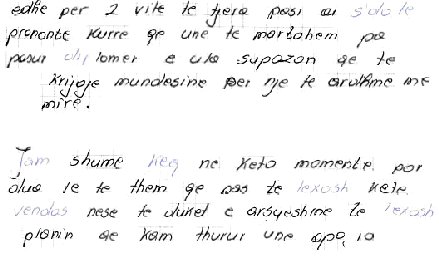 edhe per 2 vite te tjera pasi ai s'do te
pranonte kurre qe une te martohem pa
pasur diplomen e
krijoje mundesine per nje te ardhme me
mire.
Jam shume keq ne keto momente. por
dua te te them qe pas te lexosh kete
nese te duket e arsyeshme te lexosh
planin qe kam thurur une apo jo